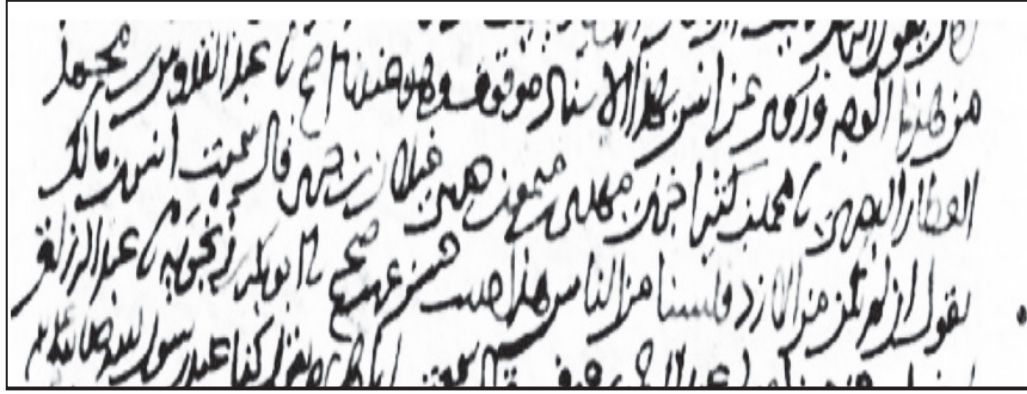 من هذا الوجه وروي عن انس بهذا الاسناد موقوف وهو عندنا اصح نا عبد القدوس بن محمد
العطار البصري نا محمد بن كثير اخبرني مهدي بن ميمون حدثني غيلان بن جرير قال سمعت انس بن مالك
يقول ان لم نكن من الازد فلسنا من الناس هذا حديث حسن غريب صحيح نا ابو بكر بن زنجويه نا عبد الرزاق
قال سمعت ابا هريرة يقول كنا عند رسول الله صلى الله عليه